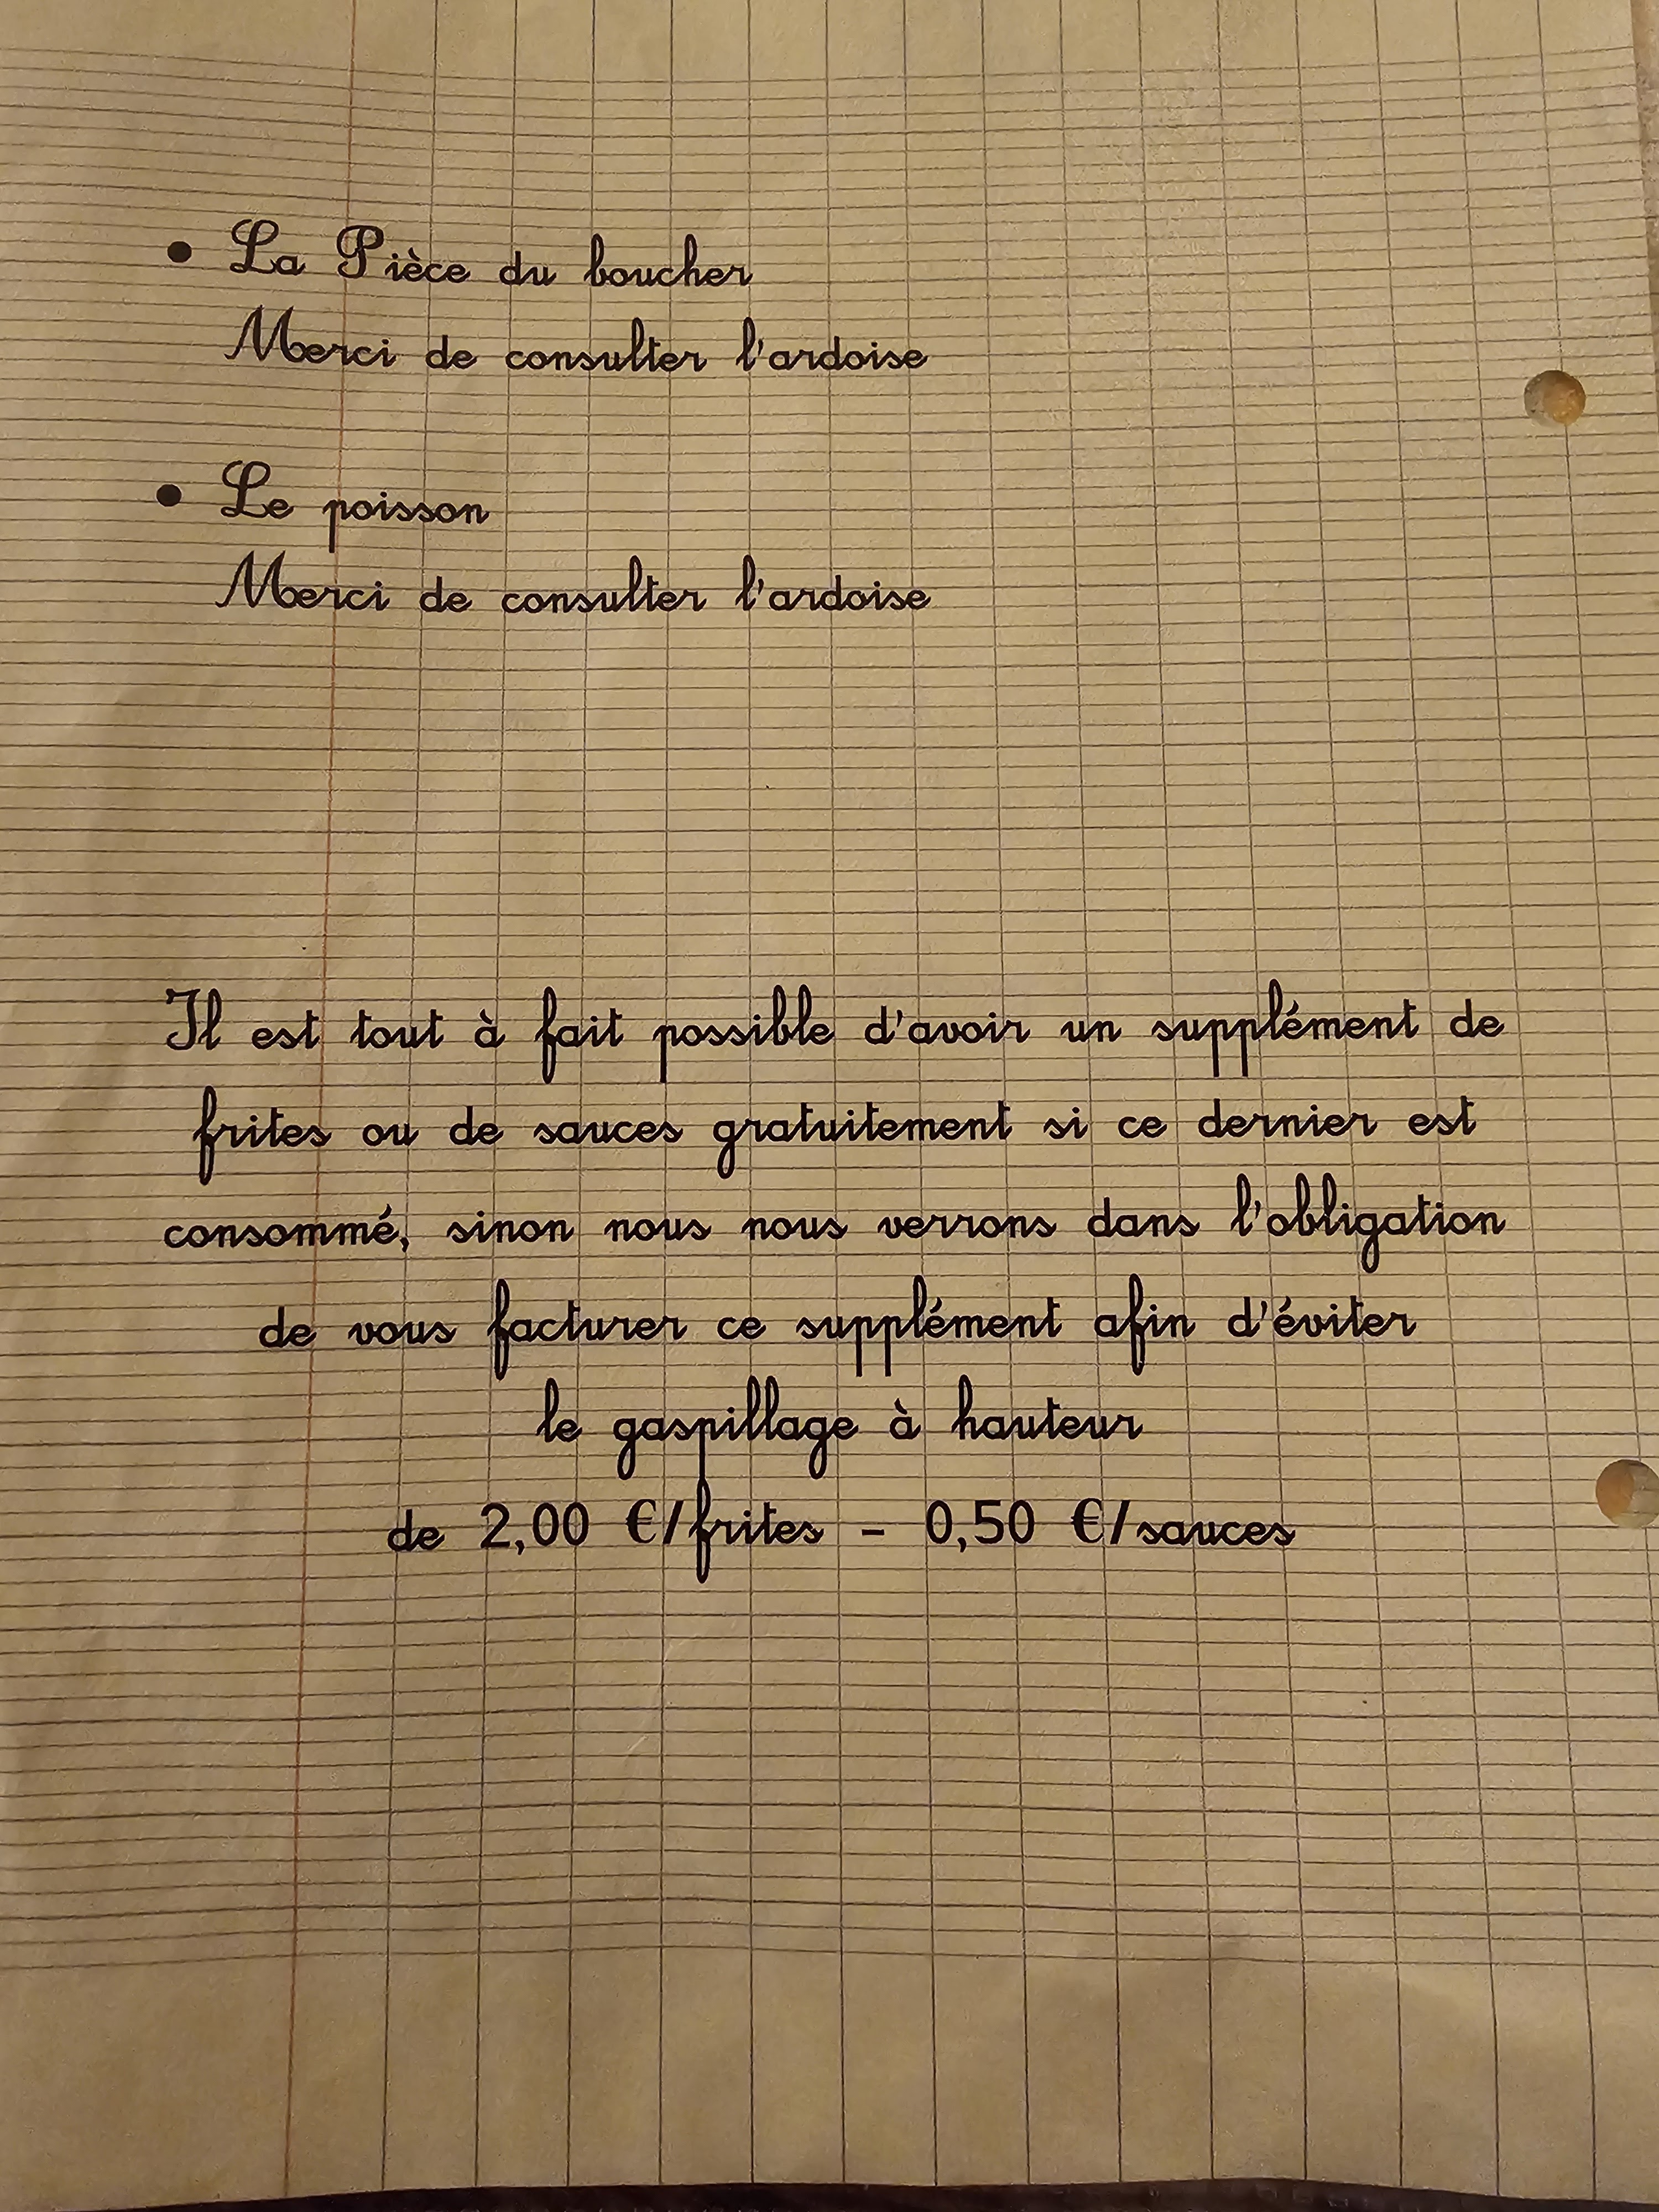 • La Pièce du boucher
Merci de consulter l'ardoise
• Le poisson
Merci de consulter l'ardoise
Il est tout à fait possible d'avoir un supplément de
frites ou de sauces gratuitement si ce dernier est
consommé, sinon nous nous verrons dans l'obligation
de vous facturer ce supplément afin d'éviter
le gaspillage à hauteur
de 2,00 €/frites - 0,50 €/sauces